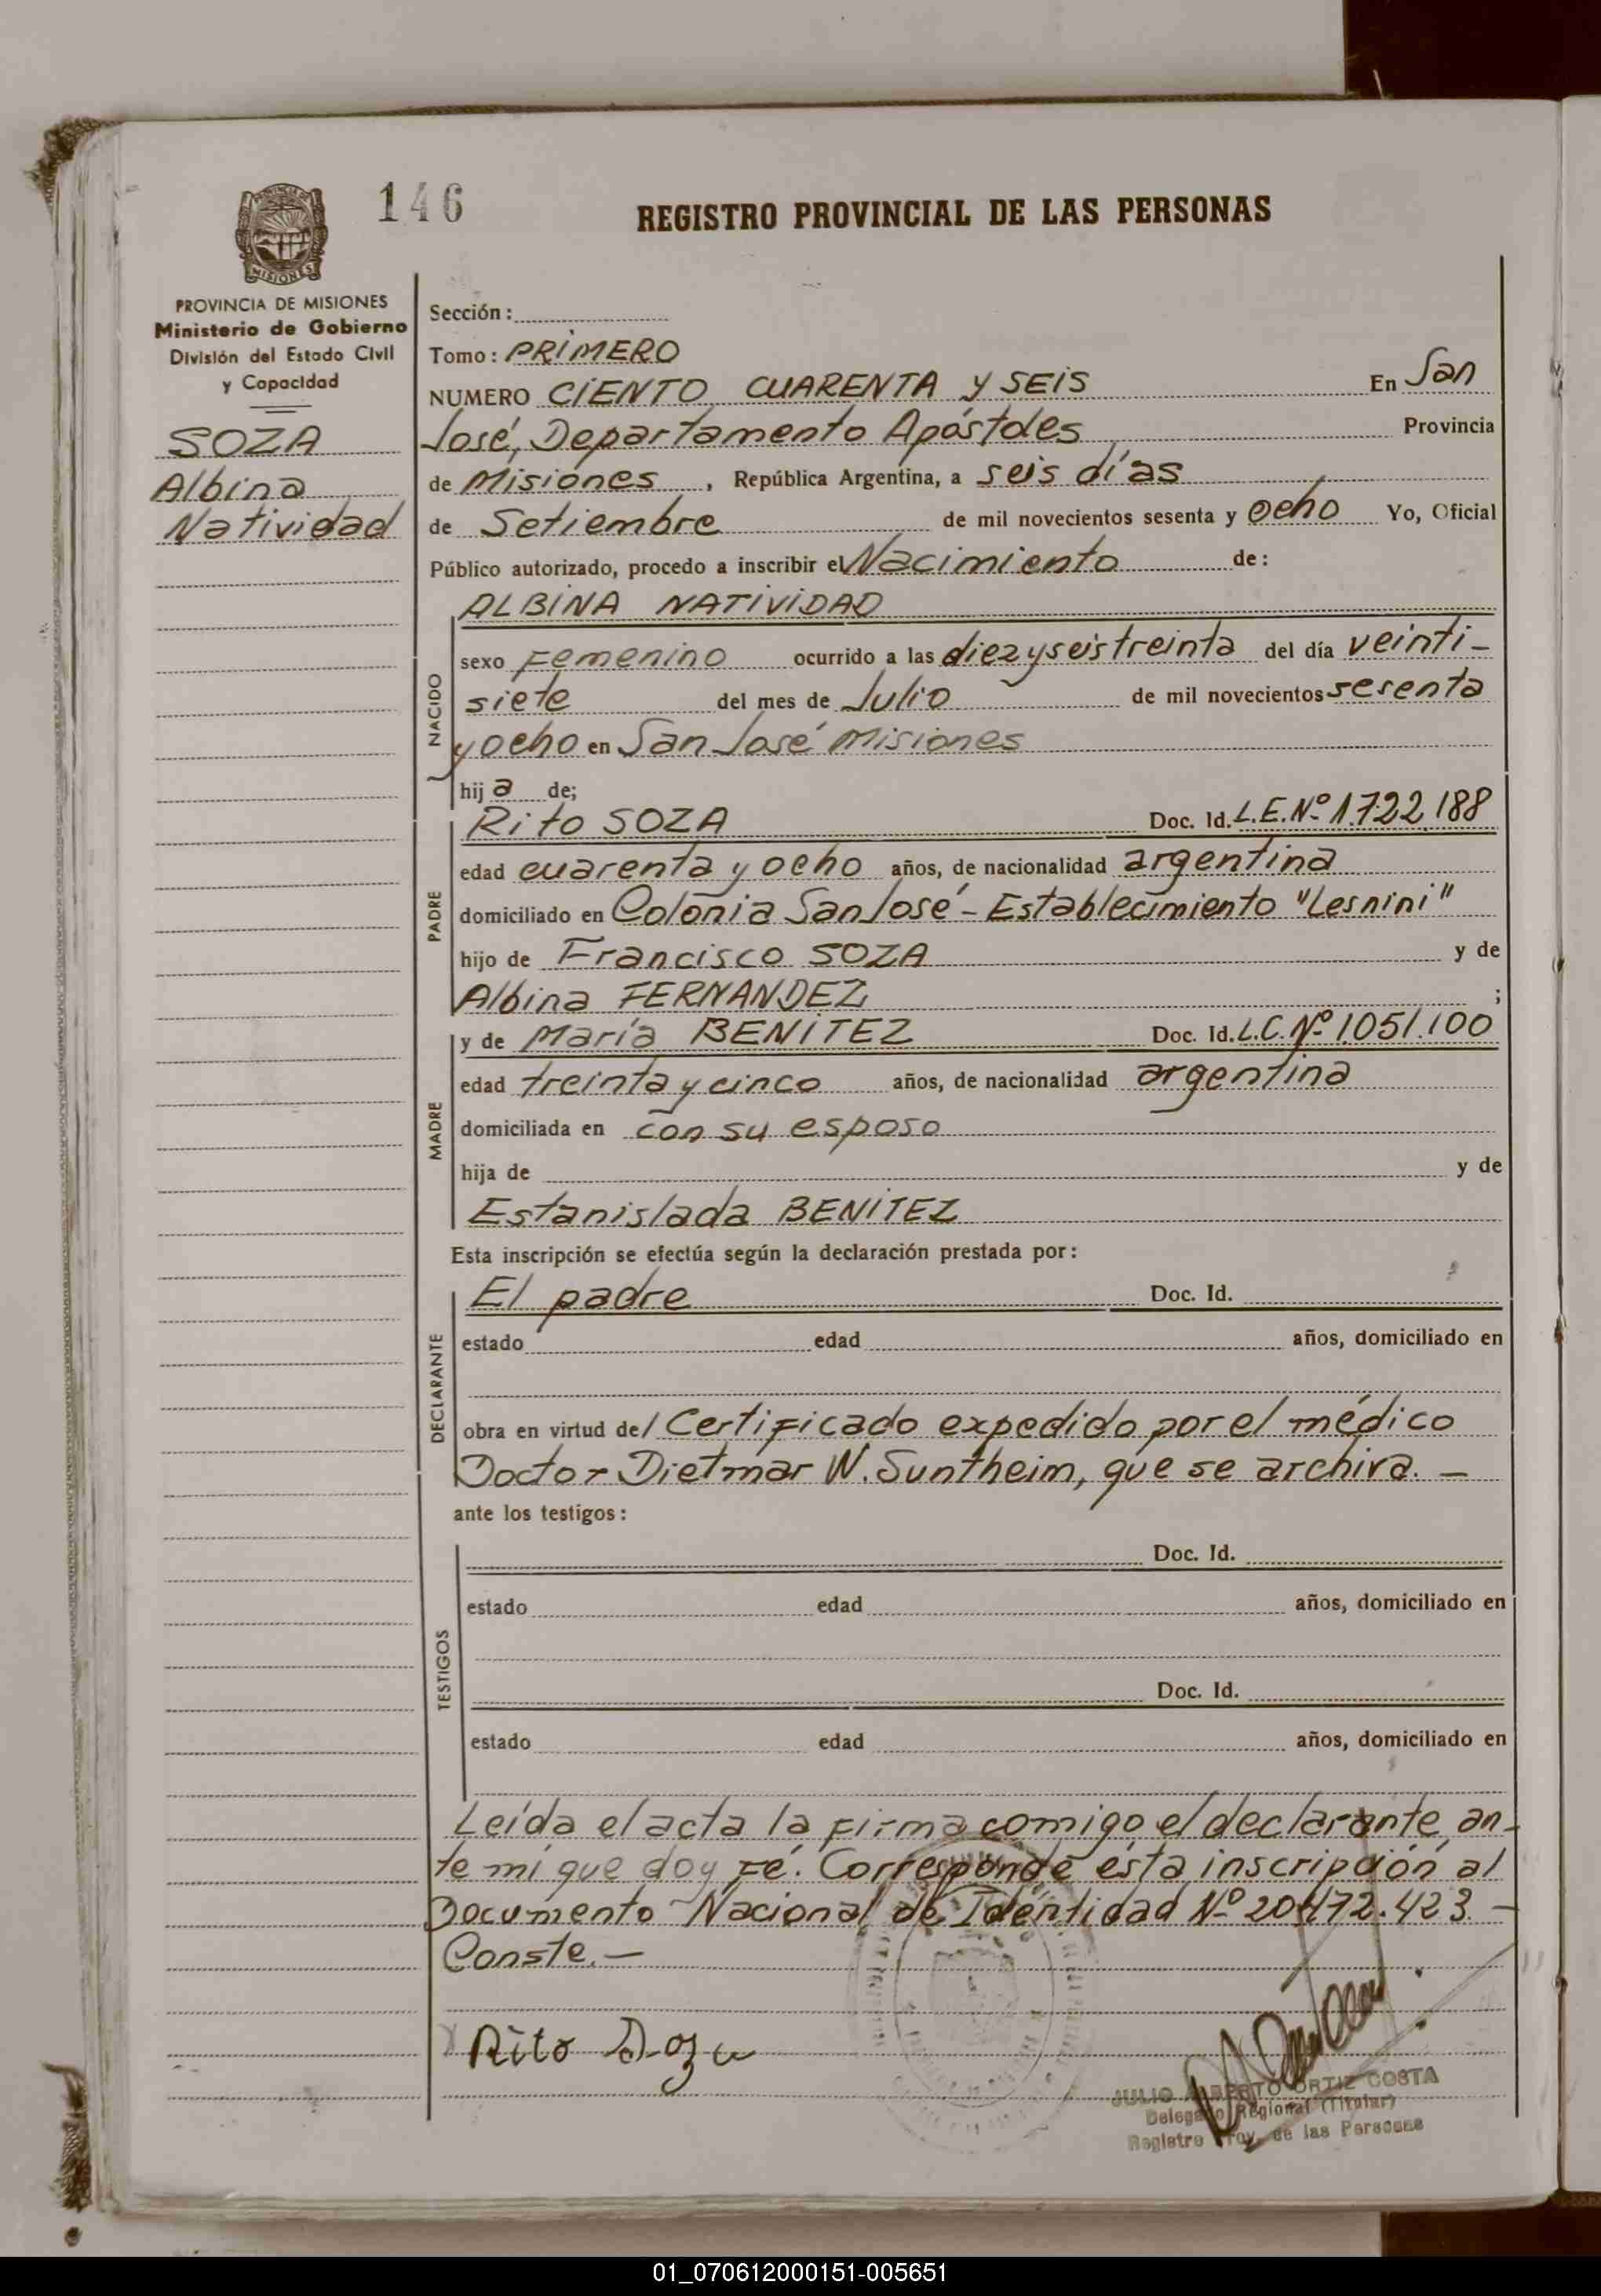 146
REGISTRO PROVINCIAL DE LAS PERSONAS
PROVINCIA DE MISIONES
Ministerio de Gobierno
División del Estado Civil
y Capacidad
SOZA
Albina
Natividad
Sección:
Tomo: PRIMERO
NUMERO CIENTO CUARENTA Y SEIS En San
José, Departamento Apóstoles Provincia
de Misiones, República Argentina, a seis días
de Setiembre de mil novecientos sesenta y ocho Yo, Oficial
Público autorizado, procedo a inscribir el Nacimiento de:
ALBINA NATIVIDAD
NACIDO
sexo Femenino ocurrido a las diez y seis treinta del día veinti-
siete del mes de Julio de mil novecientos sesenta
y ocho en San José Misiones
hija de;
PADRE
Rito SOZA Doc. Id. L.E. Nº 1.722.188
edad cuarenta y ocho años, de nacionalidad argentina
domiciliado en Colonia San José - Establecimiento "Lesnini"
hijo de Francisco SOZA y de
Albina FERNANDEZ ;
MADRE
y de María BENITEZ Doc. Id. L.C. Nº 1.051.100
edad treinta y cinco años, de nacionalidad argentina
domiciliada en con su esposo
hija de y de
Estanislada BENITEZ
Esta inscripción se efectúa según la declaración prestada por:
DECLARANTE
El padre Doc. Id.
estado edad años, domiciliado en
obra en virtud del Certificado expedido por el médico
Doctor Dietmar W. Suntheim, que se archiva. -
ante los testigos:
TESTIGOS
Doc. Id.
estado edad años, domiciliado en
Doc. Id.
estado edad años, domiciliado en
Leída el acta la firma comigo el declarante an-
te mí que doy fé. Corresponde ésta inscripción al
Documento Nacional de Idéntidad Nº 20.472.423. -
Conste. -
Rito Soza
JULIO ALBERTO ORTIZ COSTA
Delegado Regional (Titular)
Registro Prov. de las Personas
01_070612000151-005651